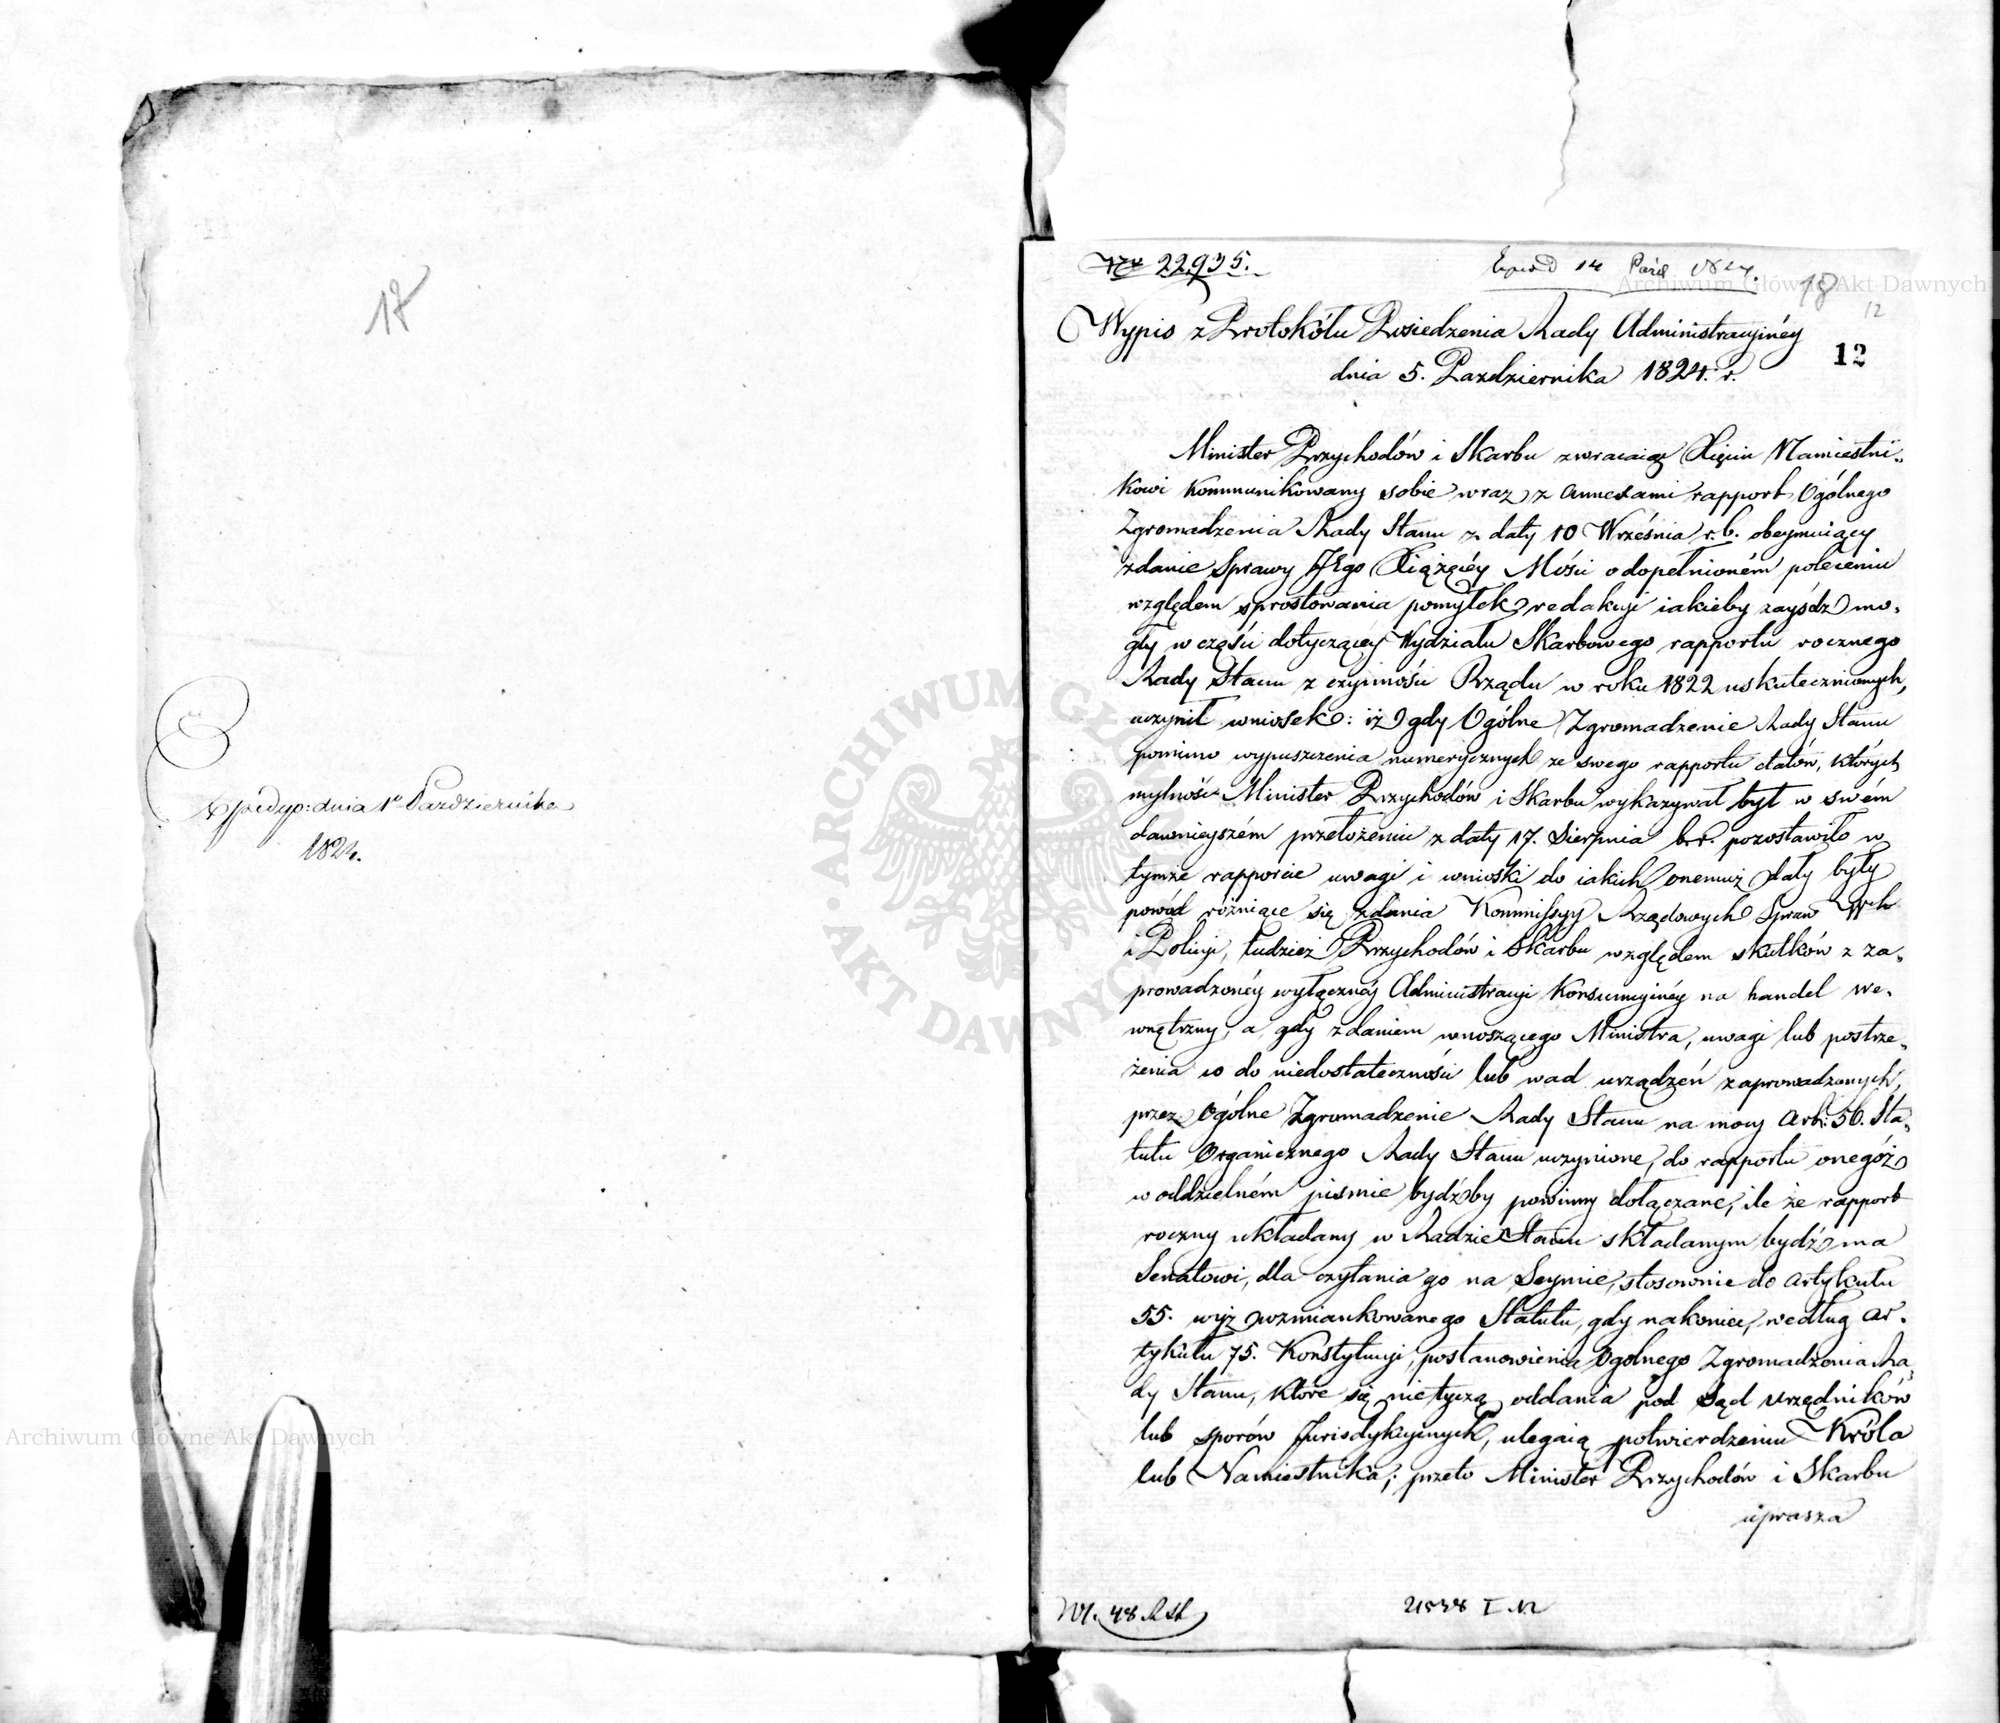 17
Expedyo: dnia 1º Października
1824.
Nro 22935.
14 Paźd 1824.
18
12
Wypis z Protokółu Posiedzenia Rady Administracyinéy
12
dnia 5. Pazdziernika 1824. r.
Minister Przychodów i Skarbu zwracaiąc Xięciu Namiestni-
kowi kommunikowany sobie wraz z annexami rapport Ogólnego
Zgromadzenia Rady Stanu z daty 10 Września r. b. obeymuiący
zdanie Sprawy JEgo Xiążęcéy Mości o dopełnioném poleceniu
względem sprostowania pomyłek redakcyi iakieby zayśdź mo-
gły w części dotyczącéy Wydziału Skarbowego rapportu rocznego
Rady Stanu z czynności Rządu w roku 1822 uskutecznionych,
uczynił wniosek: iż gdy Ogólne Zgromadzenie Rady Stanu
pomimo wypuszczenia numerycznych ze swego rapportu datów, których
mylność Minister Przychodów i Skarbu wykazywał był w swém
dawnieyszém przełożeniu z daty 17. Sierpnia b. r. pozostawiło w
tymże rapporcie uwagi i wnioski do iakich onemuż daty były
powód różniące się zdania Kommissyy Rządowych Spraw Wch
i Policyi, tudzież Przychodów i Skarbu względem skutków z za-
prowadzonéy wyłącznéy Administracyi Konsumcyinéy na handel we-
wnętrzny, a gdy zdaniem wnoszącego Ministra, uwagi lub postrze-
żenia co do niedostateczności lub wad urządzeń zaprowadzonych,
przez Ogólne Zgromadzenie Rady Stanu na mocy Art: 56. Sta-
tutu Organicznego Rady Stanu uczynione, do rapportu onegóż
w oddzielném pismie bydźby powinny dołączane, ile że rapport
roczny układany w Radzie Stanu składanym bydź ma
Senatowi, dla czytania go na Seymie, stosownie do artykułu
55. wyż wzmiankowanego Statutu, gdy nakoniec, według ar-
tykułu 75. Konstytucyi, postanowienia Ogolnego Zgromadzenia Ra-
dy Stanu, które się nietyczą oddania pod sąd urzędników
lub sporów Jurisdykcyinych, ulegaią potwierdzeniu Króla
lub Namiestnika; przeto Minister Przychodów i Skarbu
uprasza